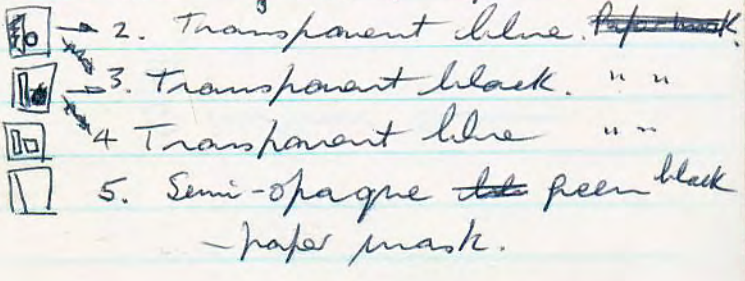 2. Transparent blue. Paper mask.
3. Transparent black. " "
4 Transparent blue " "
5. Semi-opaque green black
- paper mask.